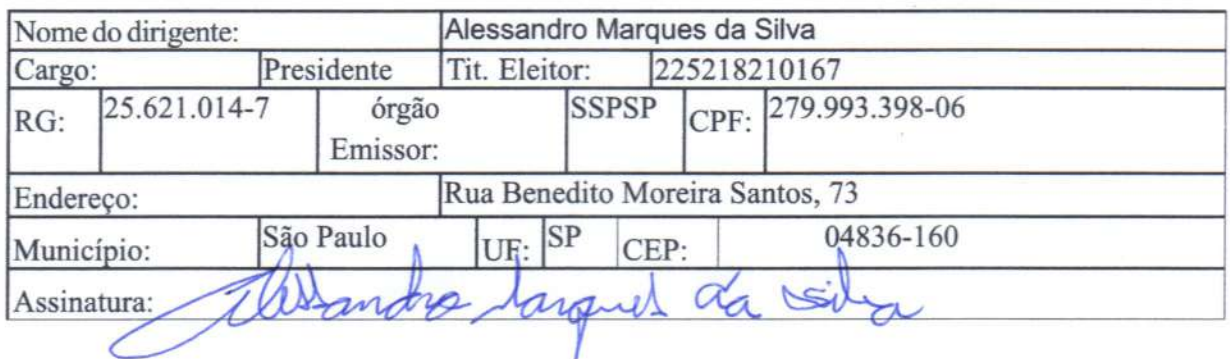 Nome do dirigente: Alessandro Marques da Silva
Cargo: Presidente Tit. Eleitor: 225218210167
RG: 25.621.014-7 órgão Emissor: SSPSP CPF: 279.993.398-06
Endereço: Rua Benedito Moreira Santos, 73
Município: São Paulo UF: SP CEP: 04836-160
Assinatura: Alessandro Marques da Silva